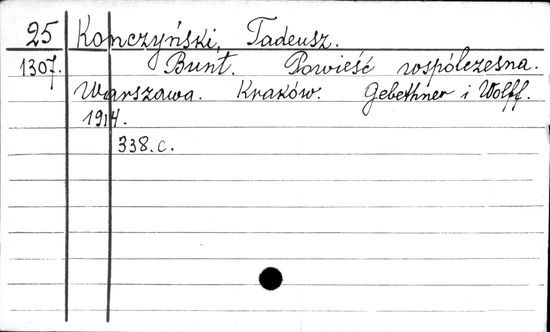 25 Konczyński, Tadeusz.
1307. Bunt. Powieść współczesna.
Warszawa. Kraków. Gebethner i Wolff.
1914.
338.c.